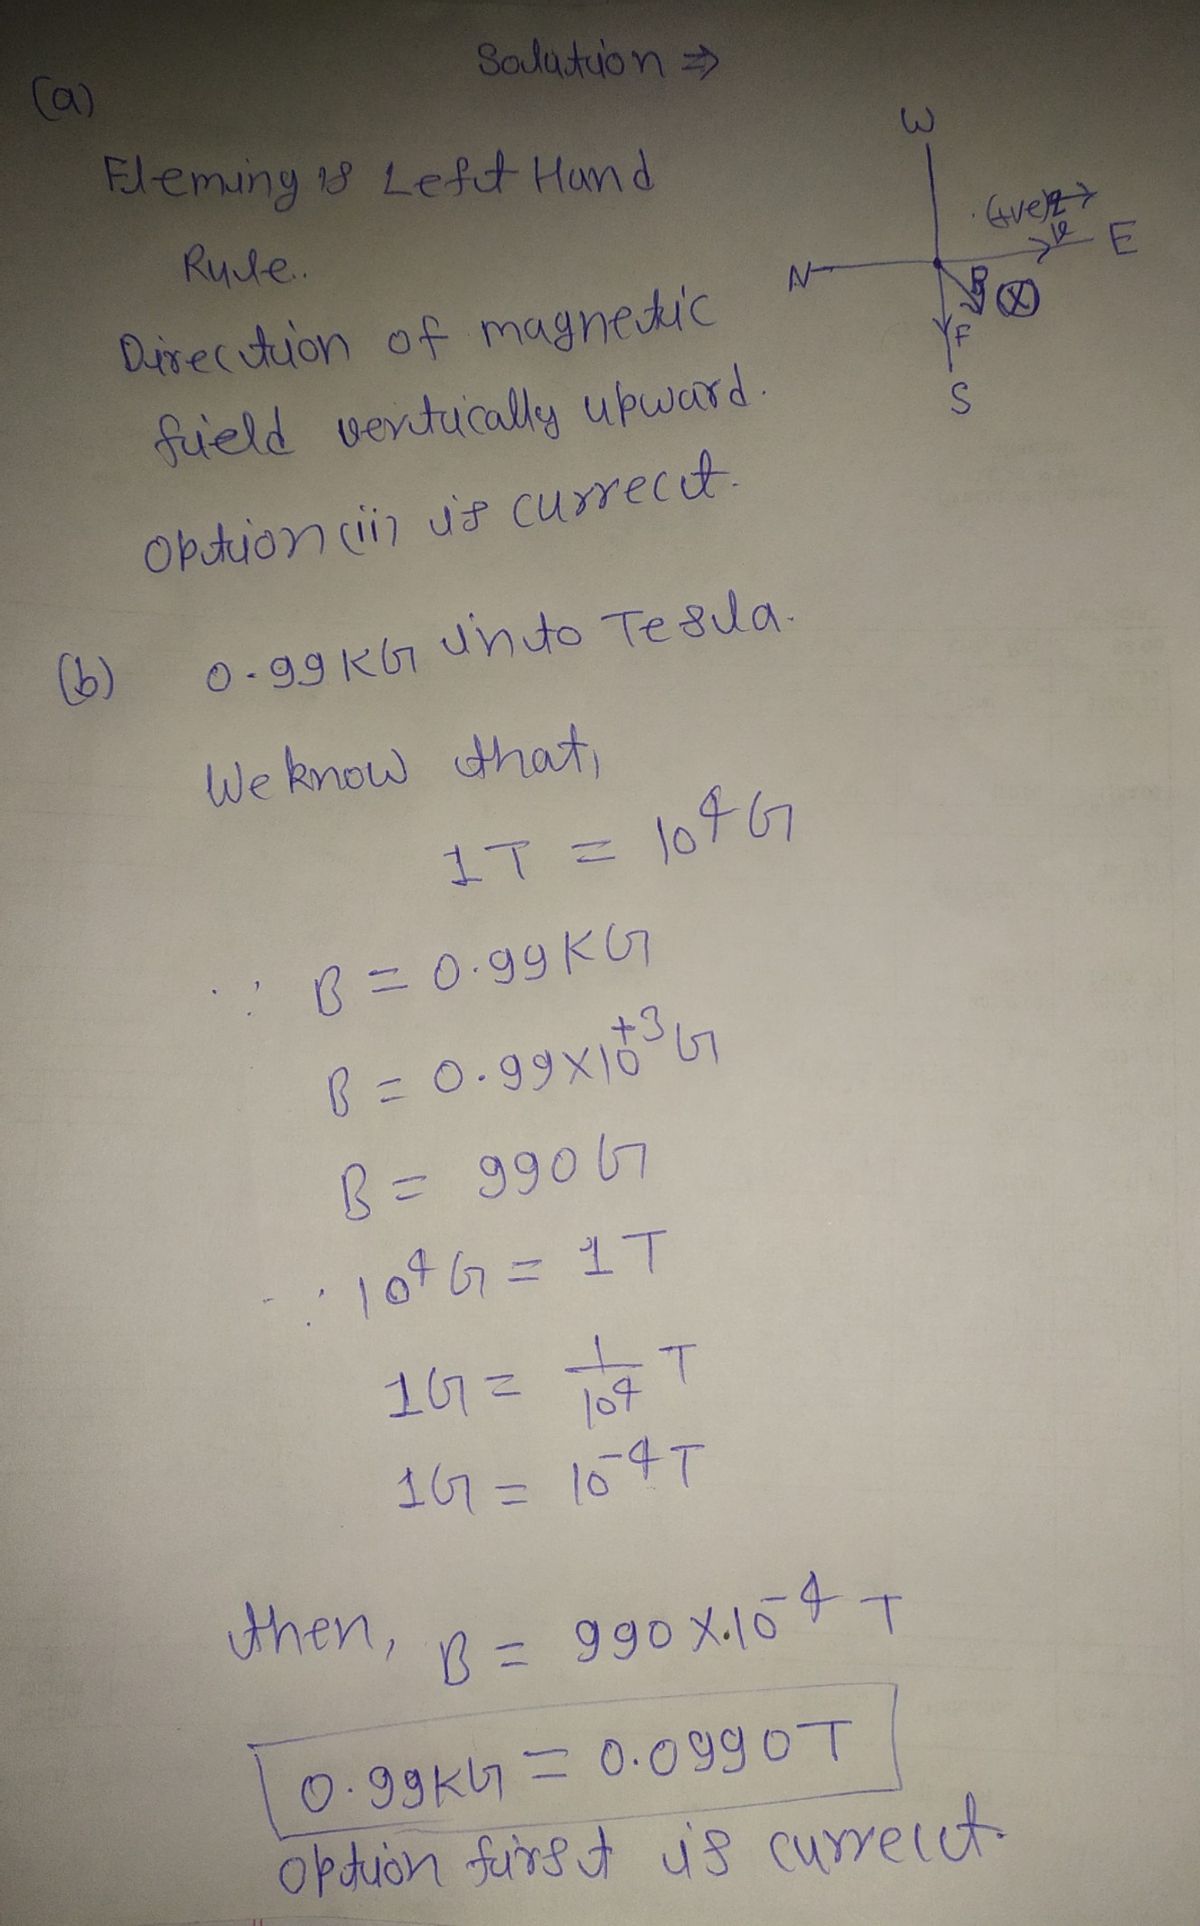 Solution ⇒
(a)
Fleming is Left Hand
Rule..
Direction of magnetic
field vertically upward.
Option (ii) is currect.
W
N
E
S
v
B
F
(b) 0.99 KG into Tesla.
We know that,
1T = 10⁴ G
∵ B = 0.99 KG
B = 0.99×10⁺³ G
B = 990 G
∵ 10⁴ G = 1T
1G = 1/10⁴ T
1G = 10⁻⁴ T
then, B = 990 X.10⁻⁴ T
0.99KG = 0.0990T
Option first is currect.